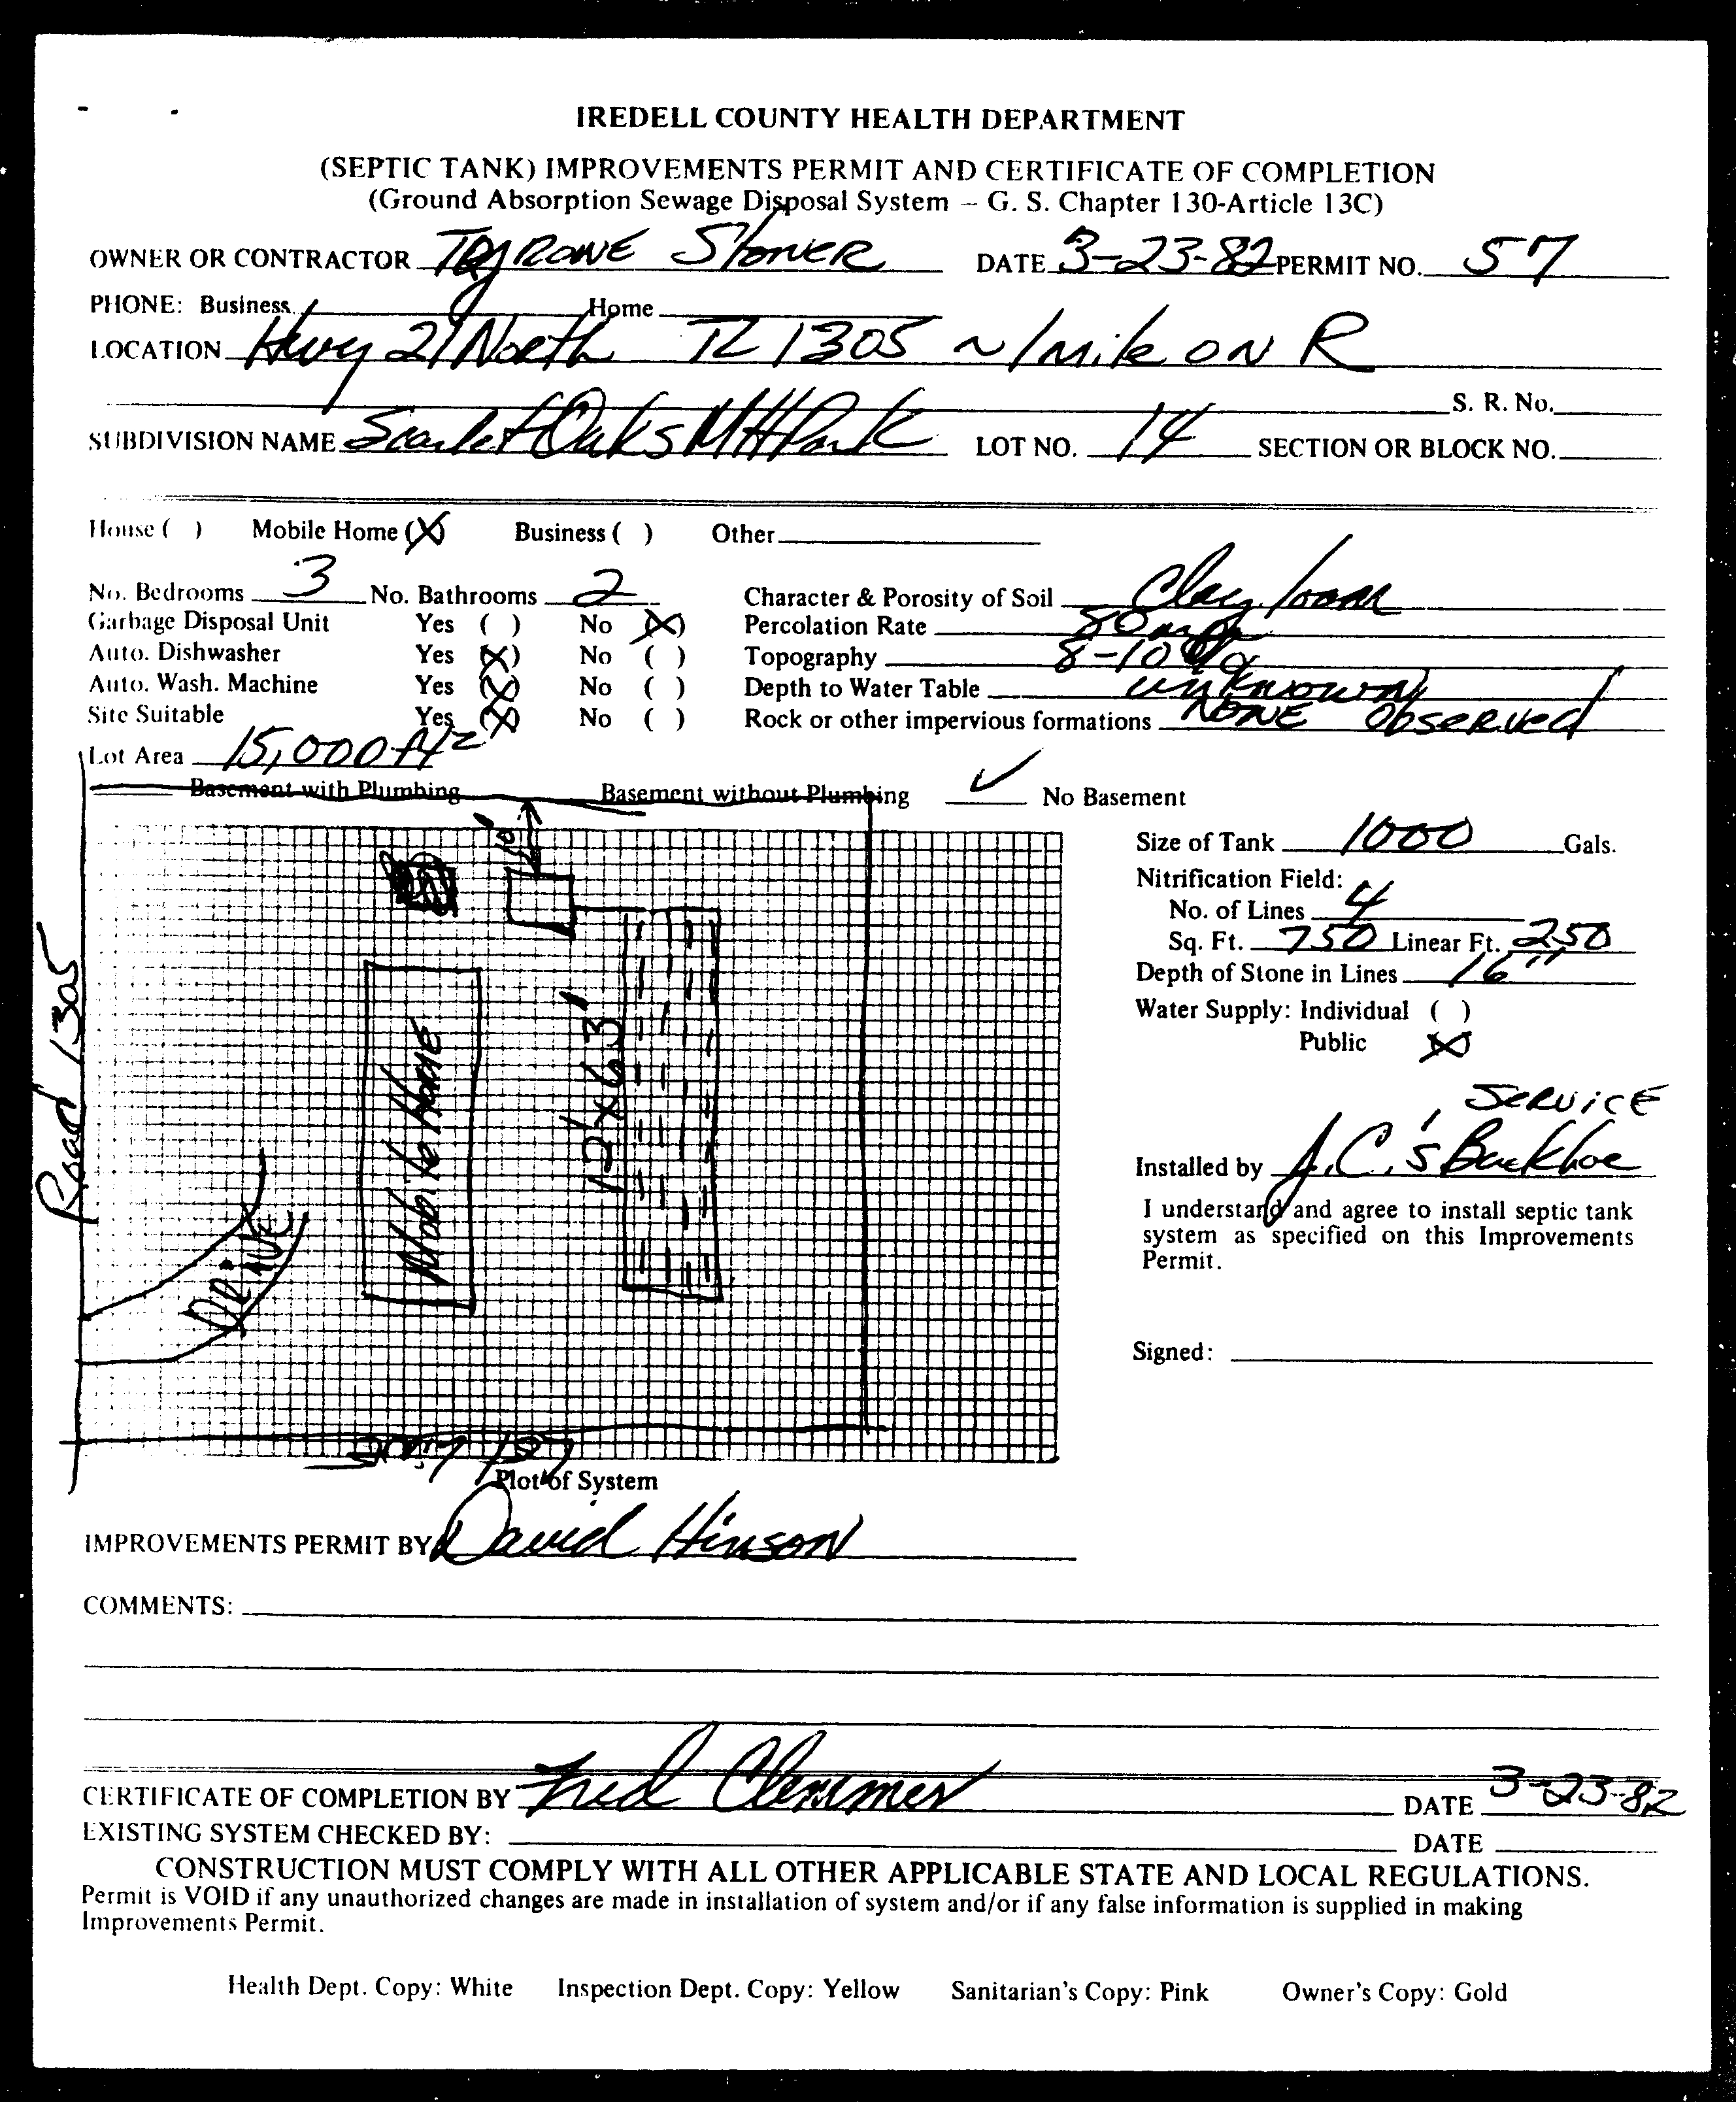 IREDELL COUNTY HEALTH DEPARTMENT
(SEPTIC TANK) IMPROVEMENTS PERMIT AND CERTIFICATE OF COMPLETION
(Ground Absorption Sewage Disposal System – G. S. Chapter 130-Article 13C)
OWNER OR CONTRACTOR Tyrone Stoner DATE 3-23-82 PERMIT NO. 57
PHONE: Business Home
LOCATION Hwy 21 North TL 1305 ~ 1 mile on R
S. R. No.
SUBDIVISION NAME Scarlet Oaks MH Park LOT NO. 14 SECTION OR BLOCK NO.
House ( ) Mobile Home (X) Business ( ) Other
No. Bedrooms 3 No. Bathrooms 2 Character & Porosity of Soil Clay loam
Garbage Disposal Unit Yes ( ) No (X) Percolation Rate 80
Auto. Dishwasher Yes (X) No ( ) Topography 8-10 %
Auto. Wash. Machine Yes (X) No ( ) Depth to Water Table unknown
Site Suitable Yes (X) No ( ) Rock or other impervious formations NONE Observed
Lot Area 15,000 ft²
Basement with Plumbing Basement without Plumbing ✓ No Basement
Size of Tank 1000 Gals.
Nitrification Field:
No. of Lines 4
Sq. Ft. 750 Linear Ft. 250
Depth of Stone in Lines 16"
Water Supply: Individual ( )
Public (X)
SERVICE
Installed by J.C.'s Backhoe
I understand and agree to install septic tank
system as specified on this Improvements
Permit.
Signed:
10'
Road 1305
Mobile Home
12'x63'
Drive
Plot of System
IMPROVEMENTS PERMIT BY David Hinson
COMMENTS:
CERTIFICATE OF COMPLETION BY Fred Clemmer DATE 3-23-82
EXISTING SYSTEM CHECKED BY: DATE
CONSTRUCTION MUST COMPLY WITH ALL OTHER APPLICABLE STATE AND LOCAL REGULATIONS.
Permit is VOID if any unauthorized changes are made in installation of system and/or if any false information is supplied in making
Improvements Permit.
Health Dept. Copy: White Inspection Dept. Copy: Yellow Sanitarian's Copy: Pink Owner's Copy: Gold